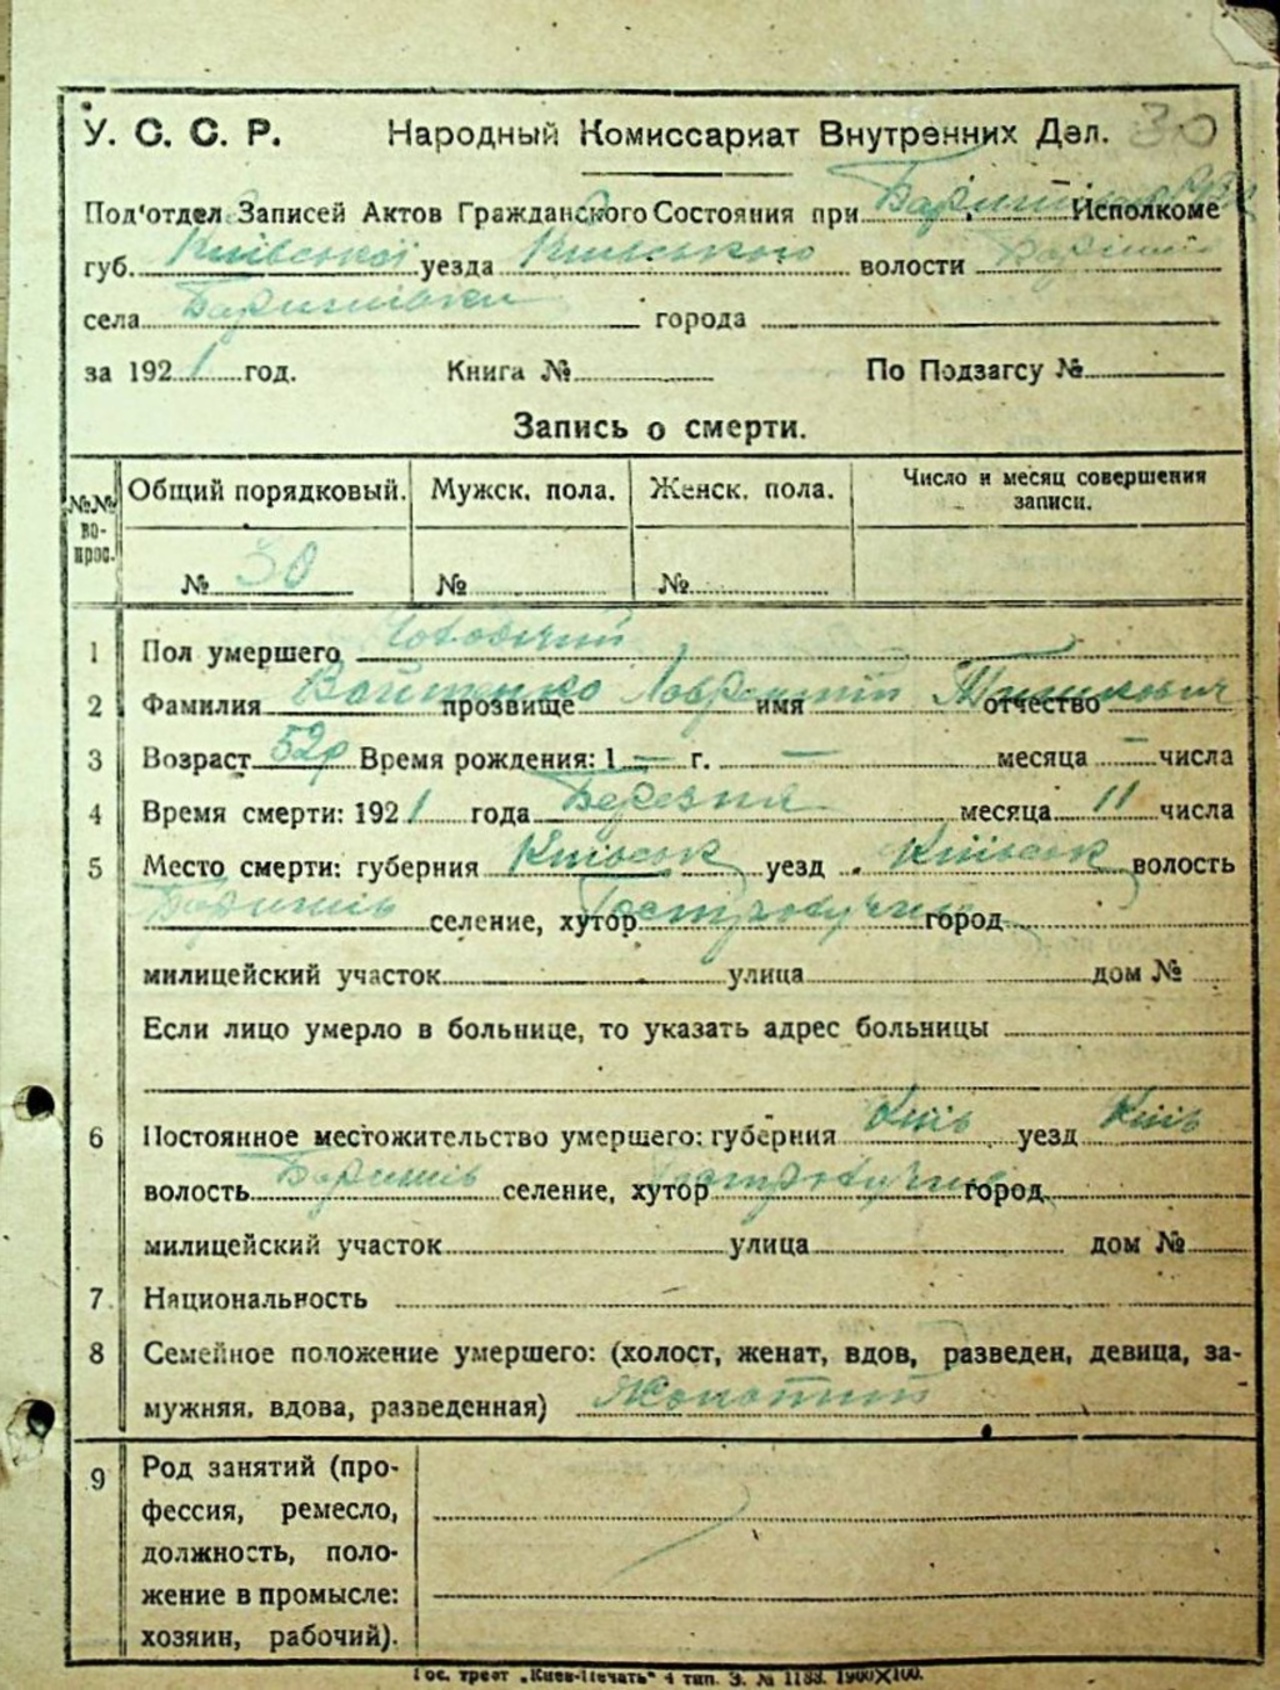 У. С. С. Р. Народный Комиссариат Внутренних Дел. 30
Под'отдел Записей Актов Гражданского Состояния при Исполкоме
губ. Київської уезда Київського волости
села Баришівки города
за 1921 год. Книга № По Подзагсу №
Запись о смерти.
№№ вопрос. Общий порядковый. Мужск. пола. Женск. пола. Число и месяц совершения записи.
№ 30 № №
1 Пол умершего Чоловічий
2 Фамилия Войтенко прозвище Лаврентій имя отчество
3 Возраст 52р Время рождения: 1 — г. — месяца — числа
4 Время смерти: 1921 года Березня месяца 11 числа
5 Место смерти: губерния Київськ уезд Київськ волость
Баришів селение, хутор город
милицейский участок улица дом №
Если лицо умерло в больнице, то указать адрес больницы
6 Постоянное местожительство умершего: губерния Київ уезд Київ
волость Баришів селение, хутор город
милицейский участок улица дом №
7 Национальность
8 Семейное положение умершего: (холост, женат, вдов, разведен, девица, за-
мужняя, вдова, разведенная) Жонатий
9 Род занятий (про-
фессия, ремесло,
должность, поло-
жение в промысле:
хозяин, рабочий).
Гос. трест „Киев-Печать" 4 тип. З. № 1188. 1900Х100.